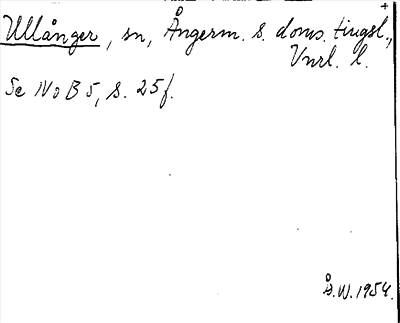 Ullånger, sn, Ångerm. s. doms. tingsl.,
Vnrl. l.
Se NoB 5, s. 25 f.
Å.W. 1954.